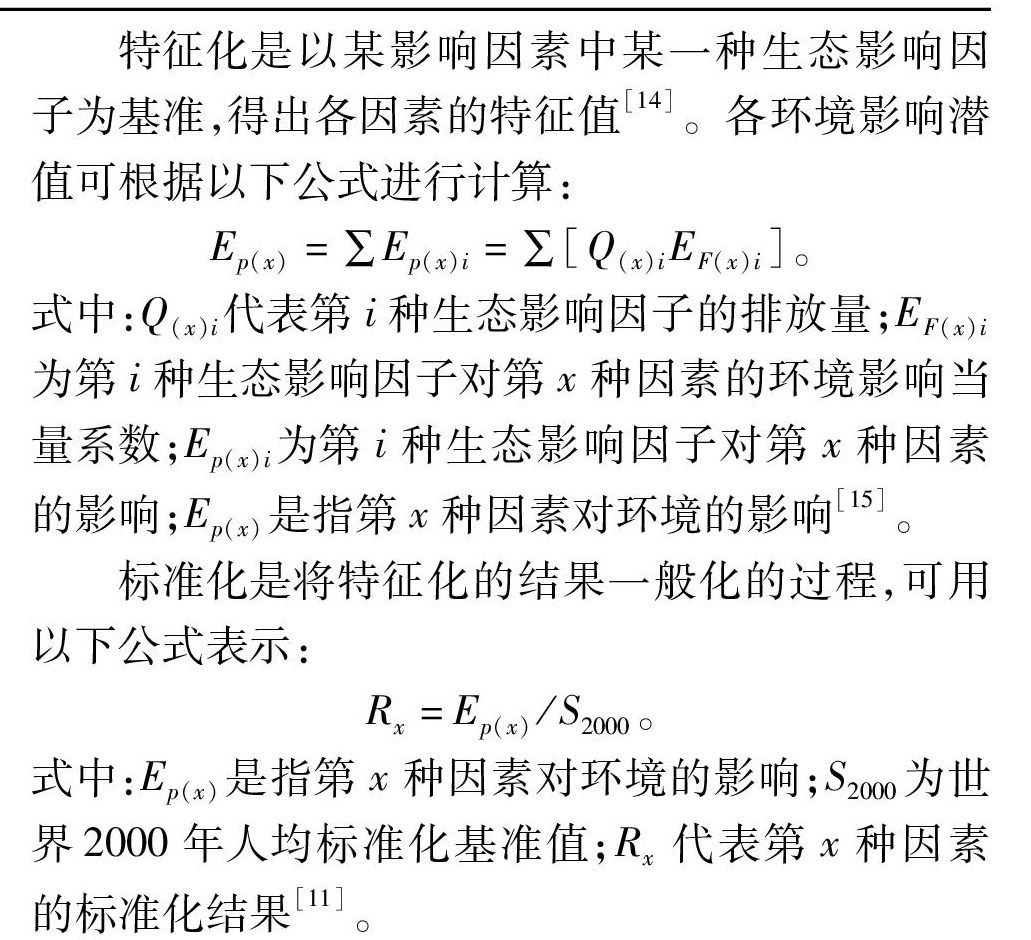 特征化是以某影响因素中某一种生态影响因
子为基准,得出各因素的特征值[14]。各环境影响潜
值可根据以下公式进行计算:
E_{p(x)} = ∑E_{p(x)i} = ∑[Q_{(x)i}E_{F(x)i}]。
式中:Q_{(x)i}代表第 i 种生态影响因子的排放量;E_{F(x)i}
为第 i 种生态影响因子对第 x 种因素的环境影响当
量系数;E_{p(x)i}为第 i 种生态影响因子对第 x 种因素
的影响;E_{p(x)}是指第 x 种因素对环境的影响[15]。
标准化是将特征化的结果一般化的过程,可用
以下公式表示:
R_x = E_{p(x)}/S_{2000}。
式中:E_{p(x)}是指第 x 种因素对环境的影响;S_{2000}为世
界 2000 年人均标准化基准值;R_x 代表第 x 种因素
的标准化结果[11]。